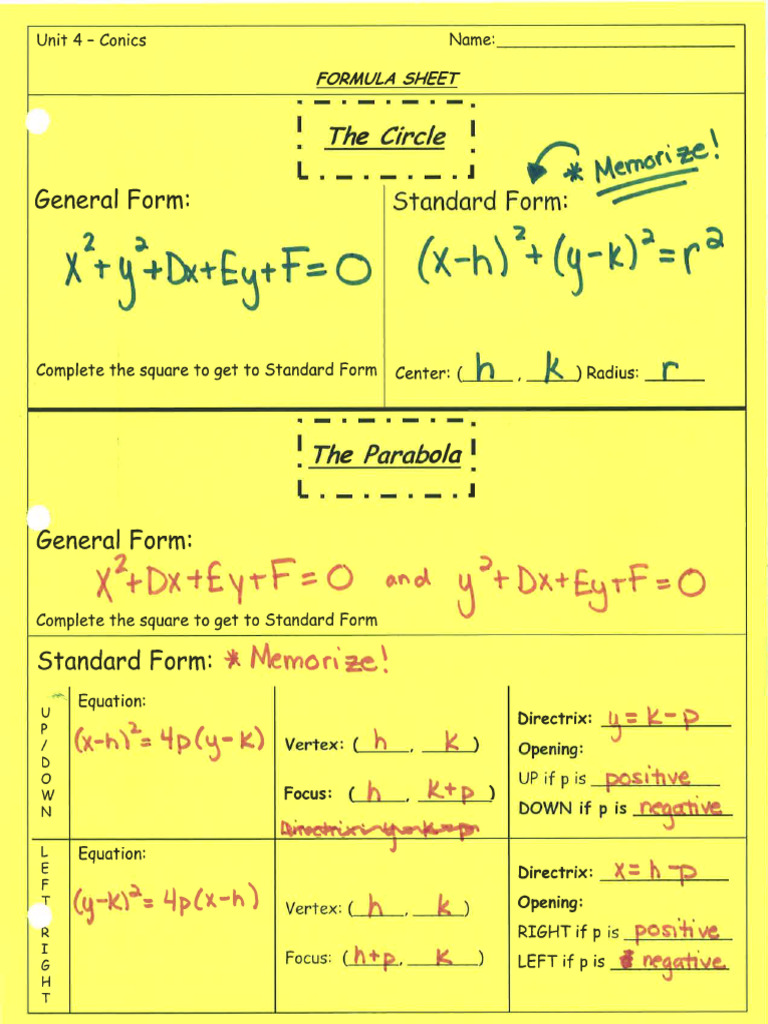 Unit 4 – Conics Name:
FORMULA SHEET
The Circle
* Memorize!
General Form:
x²+y²+Dx+Ey+F=0
Complete the square to get to Standard Form
Standard Form:
(x-h)²+(y-k)²=r²
Center: ( h , k ) Radius: r
The Parabola
General Form:
x²+Dx+Ey+F=0 and y²+Dx+Ey+F=0
Complete the square to get to Standard Form
Standard Form: * Memorize!
UP/DOWN
Equation:
(x-h)²=4p(y-k)
Vertex: ( h , k )
Focus: ( h , k+p )
Directrix: y=k-p
Directrix: y=k-p
Opening:
UP if p is positive
DOWN if p is negative
LEFT RIGHT
Equation:
(y-k)²=4p(x-h)
Vertex: ( h , k )
Focus: ( h+p , k )
Directrix: x=h-p
Opening:
RIGHT if p is positive
LEFT if p is negative